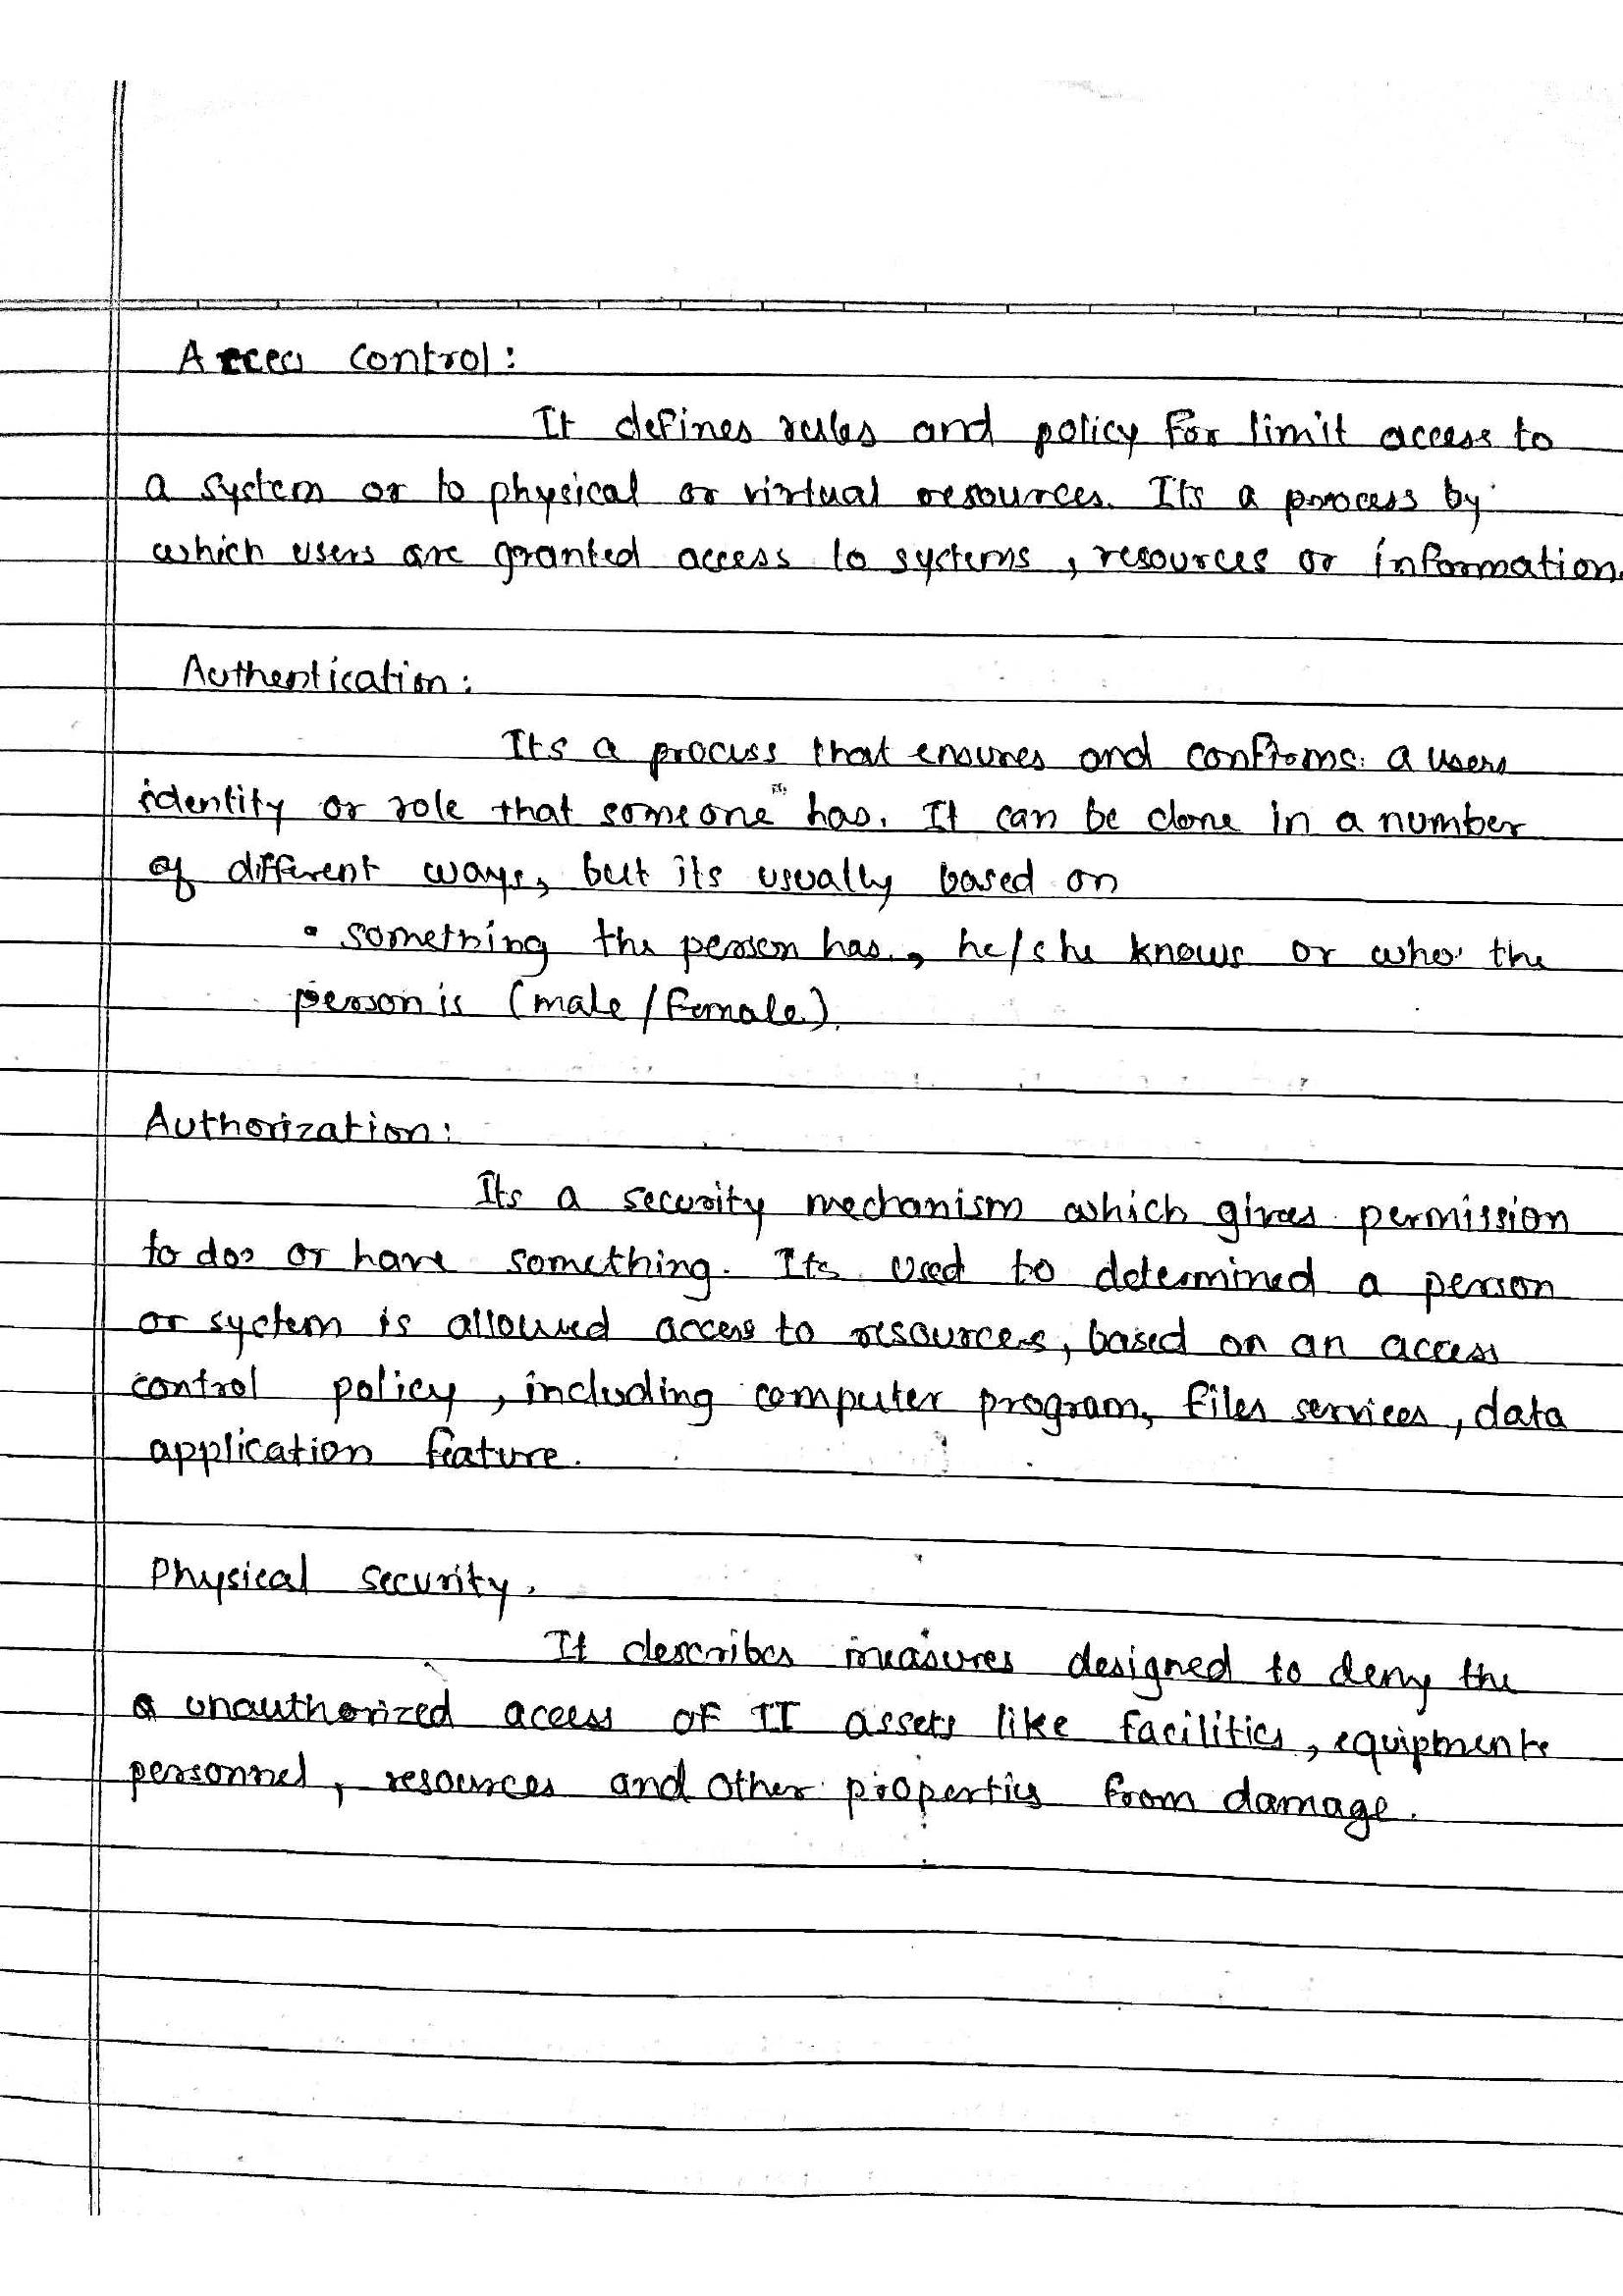 Access control:
It defines rules and policy for limit access to
a system or to physical or virtual resources. Its a process by
which users are granted access to systems, resources or information.
Authentication:
Its a process that ensures and confirms a users
identity or role that someone has. It can be done in a number
of different ways, but its usually based on
• something the person has, he/she knows or who the
person is (male/female).
Authorization:
Its a security mechanism which gives permission
to do or have something. Its used to determined a person
or system is allowed access to resources, based on an access
control policy, including computer program, files services, data
application feature.
Physical security.
It describes measures designed to deny the
unauthorized access of IT assets like facilities, equipments
personnel, resources and other properties from damage.